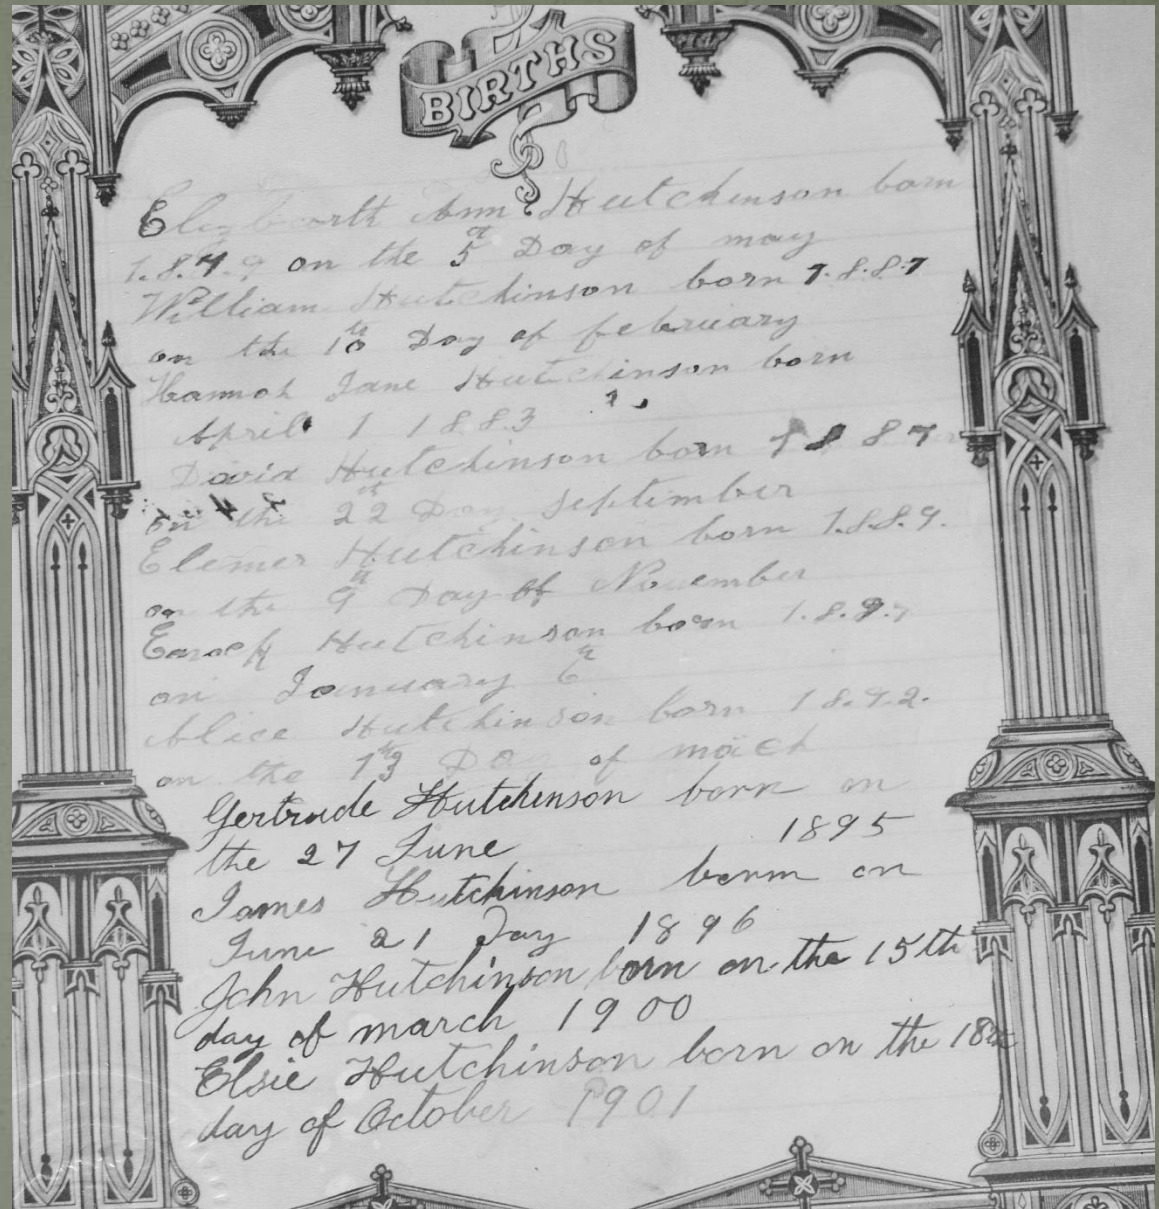 BIRTHS
Elizbearth Ann Hutchinson born
1.8.7.9 on the 5th Day of may
William Hutchinson born 1.8.8.1
on the 10th Day of february
Hannah Jane Hutchinson born
April 1 1883
David Hutchinson born 1887
on the 22th Day September
Elemer Hutchinson born 1.8.8.9.
on the 9th Day of November
Hutchinson born
on January 6th
Alice Hutchinson born 1892.
on the 13th Day of mach
Gertrude Hutchinson born on
the 27 June 1895
James Hutchinson born on
June 21 Day 1896
John Hutchinson born on the 15th
day of march 1900
Elsie Hutchinson born on the 18th
day of October 1901